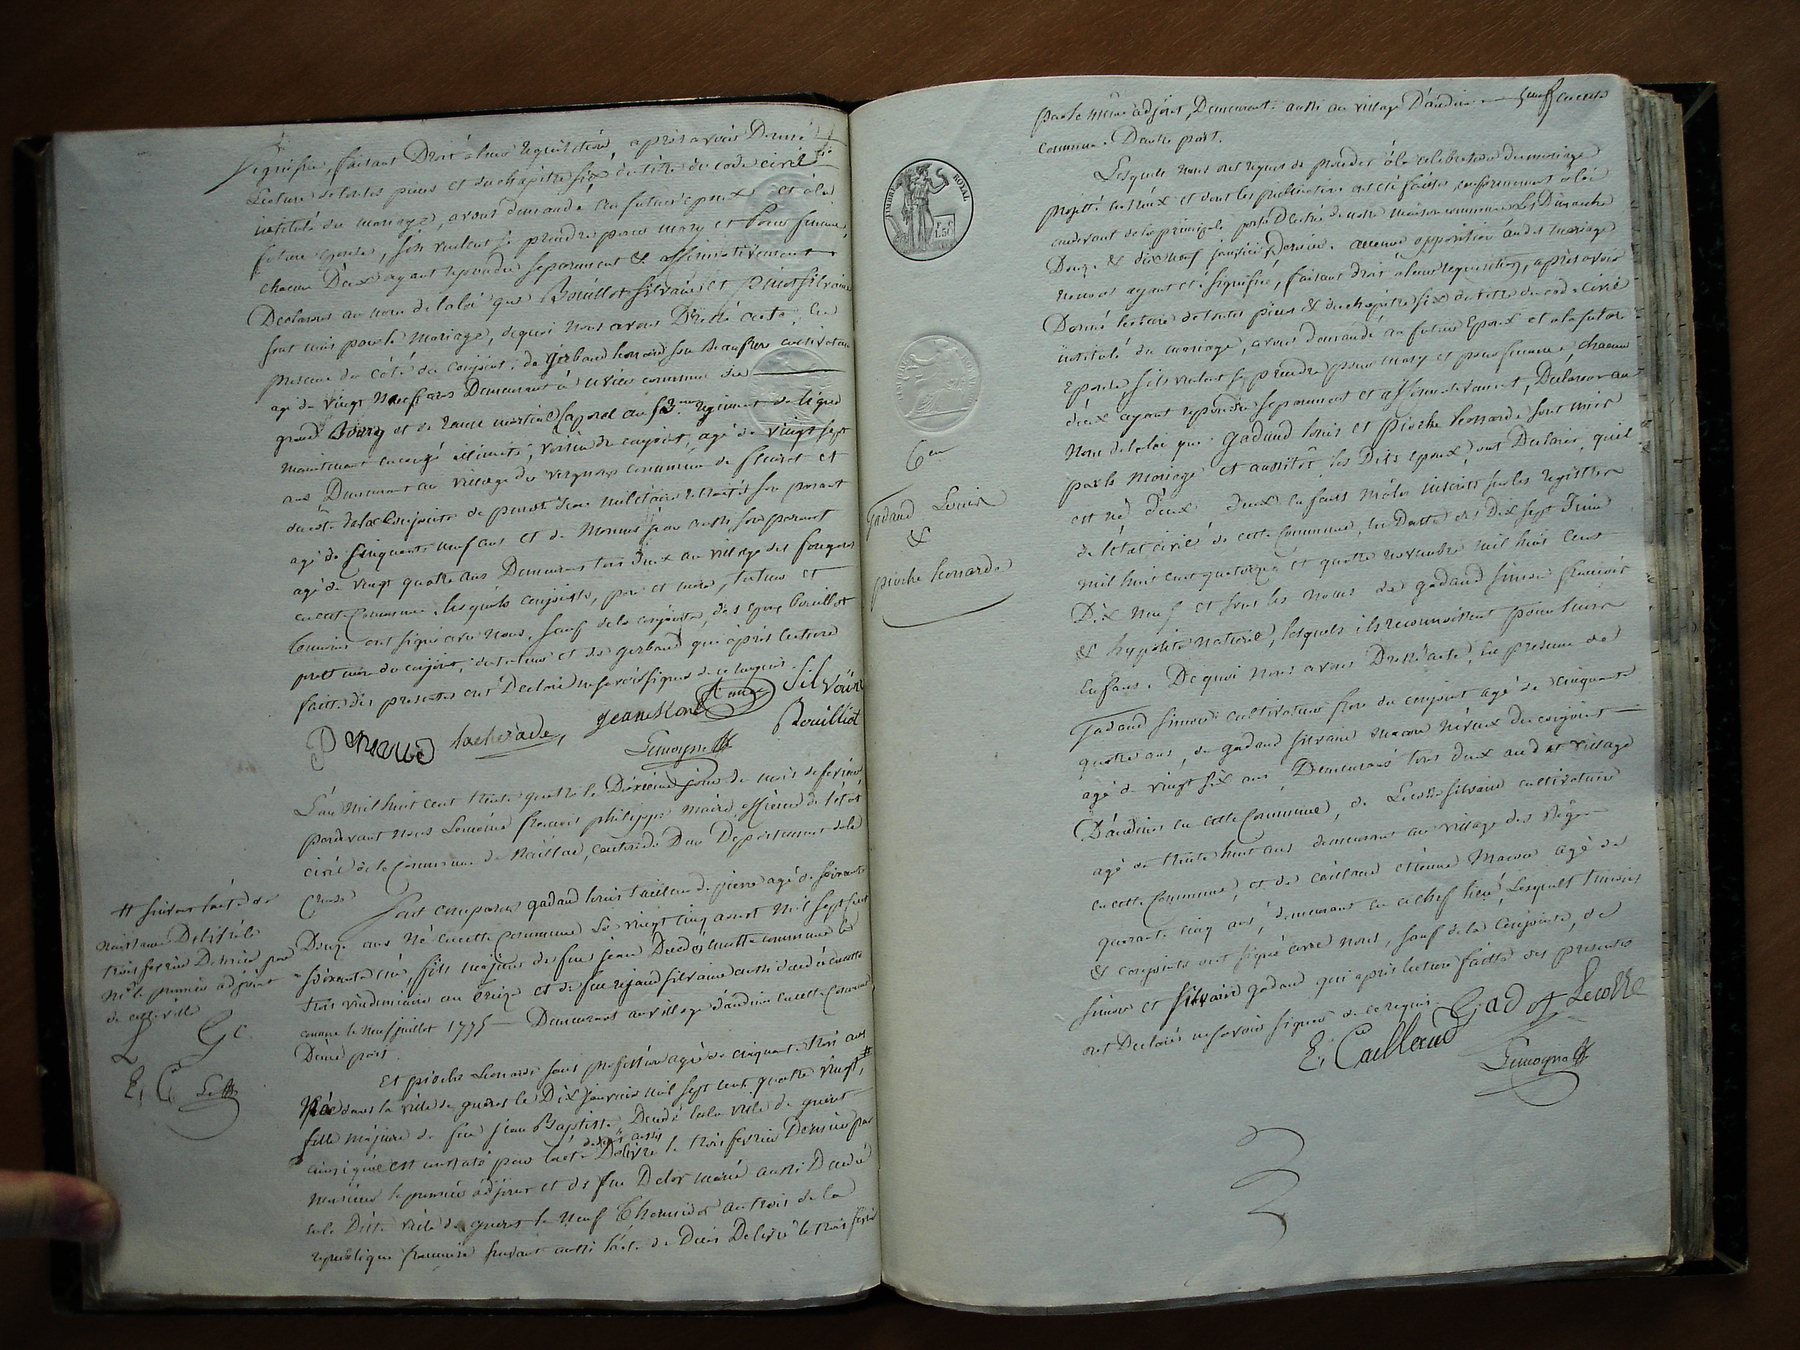 Signifiée, faisant Droit à leur réquisition, après avoir Donné
Lecture de toutes pièces et du chapitre six du titre du code civil
intitulé du mariage, avons demandé au futur époux et à la
future épouse, s'ils veulent se prendre pour mary et pour femme,
chacun D'eux ayant répondu séparément & affirmativement
Declarons au nom de la loi que Bouillot Silvain et Pinot Silvaine
sont unis par le mariage, de quoi nous avons Dressé acte, En
présence du côté du conjoint, de gerbaud léonard son Beaufrère cultivateur
agé de vingt neuf ans Demeurant à commune de
grand Bourg et de martial caporal au 52me régiment de ligne
maintenant en congé illimité, voisin du conjoint, agé de vingt sept
ans Demeurant au village des vergnes commune de fleurat et
du côté de la Conjointe de pinot militaire retraité son parent
agé de cinquante neuf ans et de Monnet jean aussi son parent
agé de vingt quatre ans Demeurans tous deux au village des fougères
en cette Commune, lesquels conjoints, père et mère, tuteur et
témoins ont signé avec nous, sauf de la conjointe, des époux bouillot
père et mère du conjoint, du tuteur et de gerbaud qui après lecture
faite des présentes ont Déclaré ne savoir signer de ce requis.
Silvain
Bouilliot
Lemoyne
L'an mil huit cent trente quatre le Dixième jour du mois de février
pardevant nous Lemoine françois philippe maire officier de l'état
civil de la Commune de Naillat, canton de Dun Département de la
Creuse
Sont comparus gadaud louis tailleur de pierre agé de soixante
Douze ans Né en cette Commune le vingt cinq aoust mil sept cent
soixante un, fils majeur de feu jean Décédé en cette commune le
trois vindemiaire an treize et de feue silvaine aussi décédée en cette
commune le neuf juillet 1775 — Demeurant au village d'audine en cette Commune
D'une part.
Et pioche Léonarde sans profession agée de cinquante trois ans
Née dans la ville de guéret le Dix janvier mil sept cent quatre vingt, #
fille majeure de feu jean Baptiste Décédé en la ville de guéret
depuis aussi
ainsi qu'il est constaté par l'acte Délivré le trois février Dernier par
monsieur le premier adjoint et de feue Delor marie aussi Décédée
en la Dite ville de guéret le neuf thermidor an trois de la
république française suivant aussi l'acte de Décès Délivré le trois février
# suivant l'acte de
naissance Délivré le
trois février Dernier par
Mr le premier adjoint
de cette ville
L G C
E. C Le
par le même adjoint, Demeurant aussi au village D'audine en cette
commune D'autre part.
Lesquels nous ont requis de procéder à la célébration du mariage
projetté entr'eux et dont les publications ont été faites conformément à la loi
audevant de la principale porte D'entrée de notre maison commune les Dimanche
Douze & dix neuf janvier Dernier. aucune opposition audit mariage
ne nous ayant été signifiée, faisant droit à leur réquisition, après avoir
Donné lecture de toutes pièces & du chapitre six du titre du code civil
intitulé du mariage, avons demandé au futur Epoux et à la future
Epouse s'ils veulent se prendre pour mary et pour femme, chacun
d'eux ayant répondu séparément et affirmativement, Declarons au
Nom de la loi que gadaud louis et pioche léonarde sont unis
par le mariage et aussitôt les Dits époux ont Déclaré, qu'il
est né d'eux deux enfans mâles inscrits sur les registres
de l'état civil de cette commune, en Datte des Dix sept Juin
mil huit cent quatorze et quatre novembre mil huit cent
Dix neuf et sous les noms de gadaud simon françois
& hypolite naturel, lesquels ils reconnoissent pour leurs
Enfans. De quoi nous avons Dressé acte, En présence de
Gadaud simon cultivateur frère du conjoint agé de cinquante
quatre ans, de gadaud silvain macon Neveux du conjoint
agé de vingt six ans Demeurans tous deux au dit village
D'audine en cette Commune, de Lecolle silvain cultivateur
agé de trente huit ans demeurant au village des
en cette Commune, et de cailleaud etienne Macon agé de
quarante cinq ans, demeurant en ce chef lieu, Lesquels témoins
& conjoints ont signé avec nous, sauf de la conjointe, de
simon et silvain gadaud qui après lecture faitte des présentes
ont Déclaré ne savoir signer de ce requis.
E. Cailleaud Gadot Lecolle
Lemoyne
TIMBRE ROYAL
1.50
6em
Gadaud Louis
&
pioche leonarde